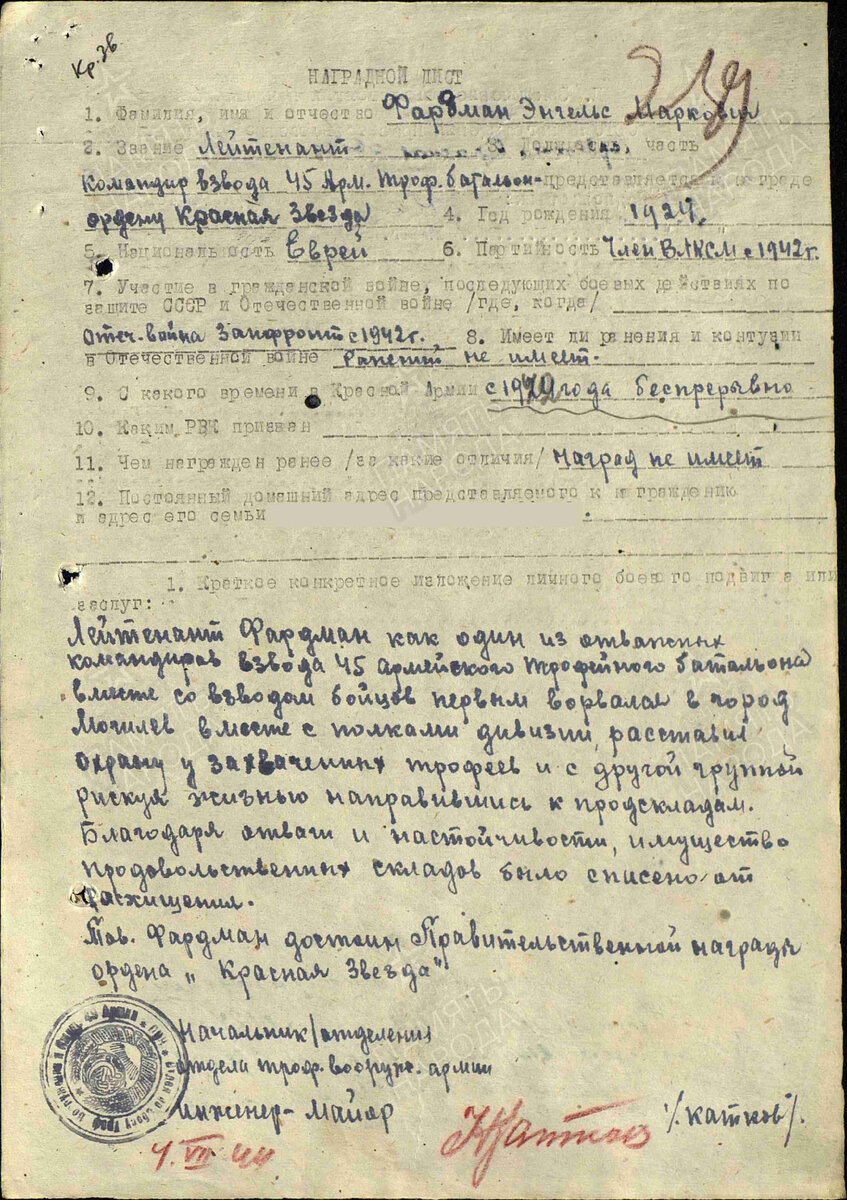 Кр. Зв
НАГРАДНОЙ ЛИСТ
1. Фамилия, имя и отчество Фардман Энгельс Маркович
2. Звание Лейтенант 3. Должность, часть
Командир взвода 45 Арм. Троф. батальон представляется к награде
ордену Красная Звезда 4. Год рождения 1924.
5. Национальность Еврей 6. Партийность Член ВЛКСМ с 1942 г.
7. Участие в гражданской войне, последующих боевых действиях по
защите СССР и Отечественной войне /где, когда/
Отеч. война Запфронт с 1942 г. 8. Имеет ли ранения и контузии
в Отечественной войне Ранений не имеет.
9. С какого времени в Красной Армии с 1942 года беспрерывно
10. Каким РВК призван
11. Чем награжден ранее /за какие отличия/ Наград не имеет
12. Постоянный домашний адрес представляемого к награждению
и адрес его семьи
1. Краткое конкретное изложение личного боевого подвига или
заслуг:
Лейтенант Фардман как один из отважных
командиров взвода 45 Армейского трофейного батальона
вместе со взводом бойцов первым ворвался в город
Могилев вместе с полками дивизии, расставил
охрану у захваченных трофеев и с другой группой
рискуя жизнью направившись к продскладам.
Благодаря отваги и настойчивости, имущество
продовольственных складов было списено от
расхищения.
Тов. Фардман достоин Правительственной награды
ордена „Красная Звезда"
Начальник/отделения
отдела троф. вооруж. армии
инженер-майор /Катков/.
4.VII 44